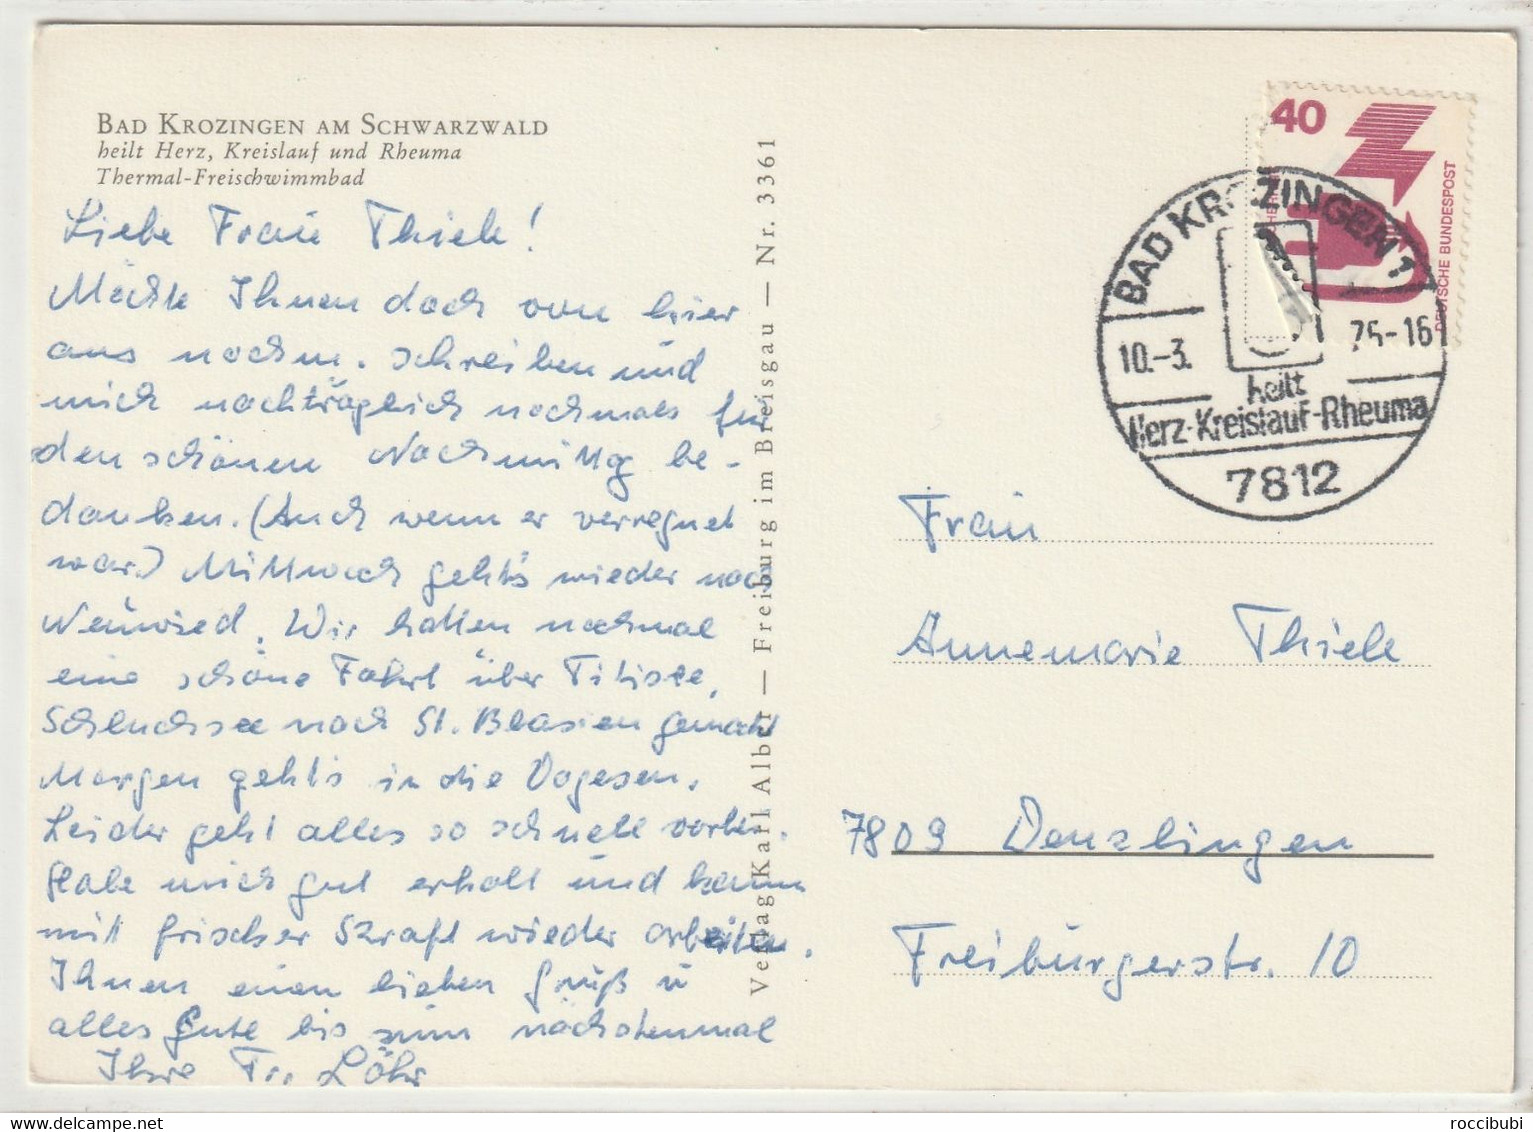 BAD KROZINGEN AM SCHWARZWALD
heilt Herz, Kreislauf und Rheuma
Thermal-Freischwimmbad
Liebe Frau Thiele!
Möchte Ihnen doch von hier
aus nochm. schreiben und
mich nachträglich nochmals für
den schönen Nachmittag be-
danken. (Auch wenn er verregnet
war.) Mittwoch geht's wieder nach
Neuwied. Wir hatten nochmal
eine schöne Fahrt über Titisee,
Schluchsee nach St. Blasien gemacht
Morgen geht's in die Vogesen.
Leider geht alles so schnell vorbei.
Habe mich gut erholt und kann
mit frischer Kraft wieder arbeiten.
Ihnen einen lieben Gruß u
alles Gute bis zum nächstenmal
Ihre Fr. Löhr
Verlag Karl Alber — Freiburg im Breisgau — Nr. 3361
40
DEUTSCHE BUNDESPOST
BAD KROZINGEN 1
10.-3. 75-16
heilt
Herz-Kreislauf-Rheuma
7812
Frau
Annemarie Thiele
7809 Denzlingen
Freiburgerstr. 10
delcampe.net
roccibubi